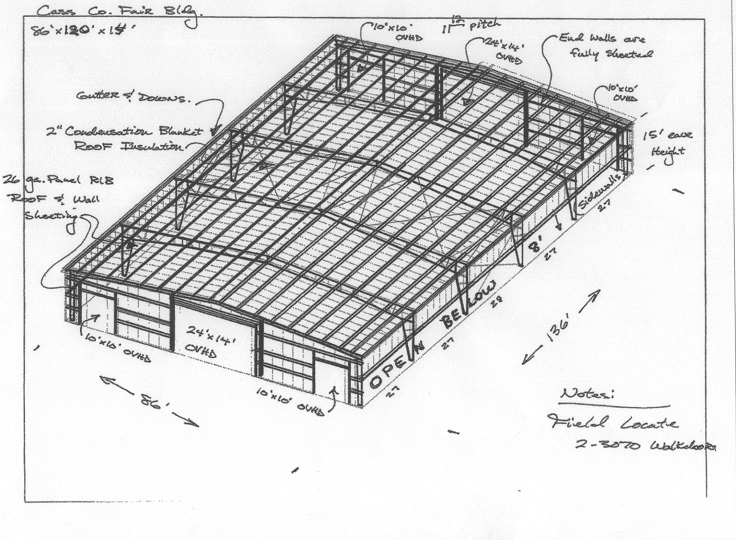 Cass Co. Fair Bldg.
86' x 120' x 15'
10'x10'
OVHD
12
11 pitch
24'x14'
OVHD
End Walls are
fully Sheeted
10'x10'
OVHD
Gutter & Downs.
2" Condensation Blanket
ROOF Insulation
15' eave
Height
26 ga. Panel RIB
ROOF & Wall
Sheeting
Sidewalls
27
8'
27
OPEN BELOW
28
27
27
136'
24'x14'
OVHD
10'x10' OVHD
10'x10' OVHD
86'
Notes:
Field Locate
2-3070 Walkdoors